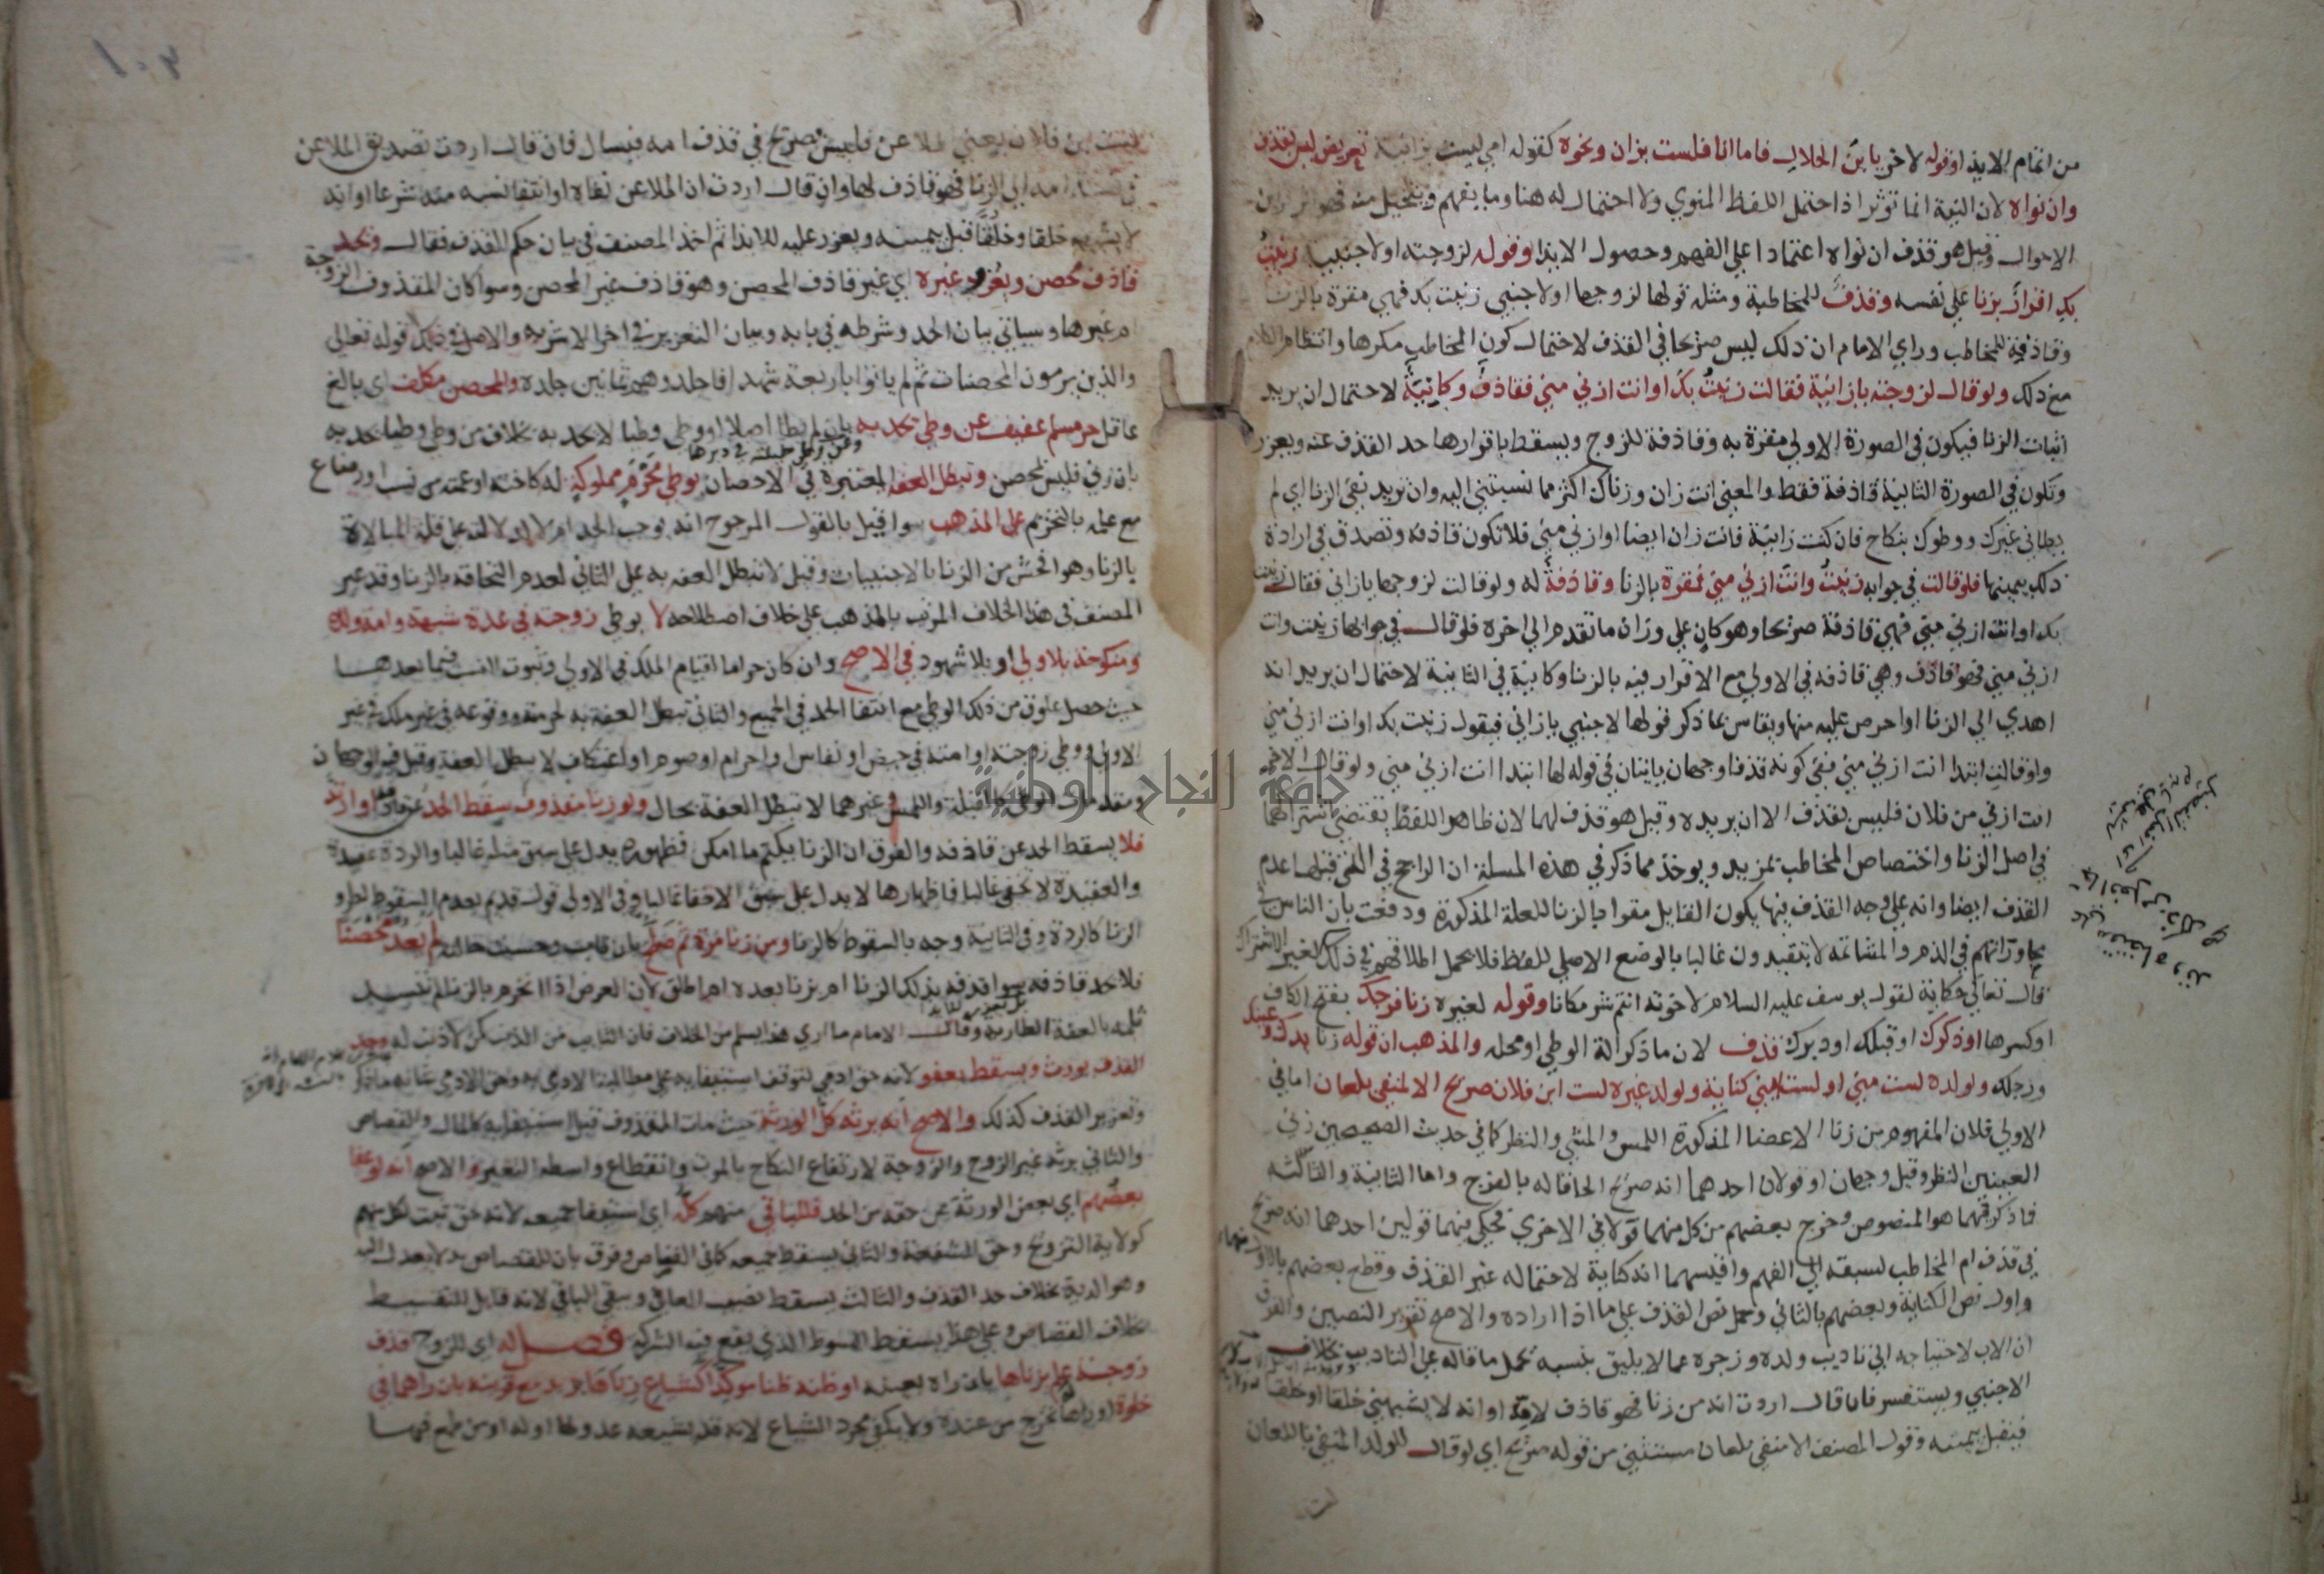 من اتمام الايذا وقوله لاخر يابن الحلال فاما انا فلست بزان ونحوه كقوله امي ليست بزانية تعريض ليس بقذف
وان نواه لان النية انما توثر اذا احتمل اللفظ المنوي ولا احتمال له هنا وما يفهم ويتخيل منه فهو اثر قراين
الاحوال وقيل هو قذف ان نواه اعتمادا علي الفهم وحصول الايذا وقوله لزوجته او لاجنبية زنيت
بك اقرار بزنا علي نفسه وقذف للمخاطبة ومثله قولها لزوجها او لاجنبي زنيت بك فهي مقرة بالزنا
وقاذفة للمخاطب وراي الامام ان ذلك ليس صريحا في القذف لاحتمال كون المخاطب مكرها وانتظام الكلام
مع ذلك ولو قال لزوجته يا زانية فقالت زنيت بك او انت ازني مني فقاذف وكانية لاحتمال ان يريد
اثبات الزنا فيكون في الصورة الاولي مقرة به وقاذفة للزوج ويسقط باقرارها حد القذف عنه ويعزر
وتكون في الصورة الثانية قاذفة فقط والمعني انت زان وزناك اكثر مما نسبتني اليه وان تريد نفي الزنا اي لم
يطاني غيرك ووطوك بنكاح فان كنت زانية فانت زان ايضا او ازني مني فلا تكون قاذفة وتصدق في ارادة
ذلك بيمينها فلو قالت في جوابه زنيت وانت ازني مني فمقرة بالزنا وقاذفة له ولو قالت لزوجها يا زاني فقال زنيت
بك او انت ازني مني فهي قاذفة صريحا وهو كان علي وزان ما تقدم الي اخره فلو قال في جوابها زنيت وانت
ازني مني فهو قاذف وهي قاذفة في الاولي مع الاقرار فيه بالزنا وكانية في الثانية لاحتمال ان يريد انه
اهدي الي الزنا او احرص عليه منها ويقاس بما ذكر قولها لاجنبي يا زاني فيقول زنيت بك او انت ازني مني
ولو قالت ابتدا انت ازني مني ففي كونه قذفا وجهان ياتيان في قوله لها ابتدا انت ازني مني ولو قال لاخر
انت ازني من فلان فليس بقذف الا ان يريده وقيل هو قذف لهما لان ظاهر اللفظ يقتضي اشتراكهما
في اصل الزنا واختصاص المخاطب بمزيد ويوخذ مما ذكر في هذه المسلة ان الراجح في التي قبلها عدم
القذف ايضا وانه علي وجه القذف فيها يكون القايل مقرا بالزنا للعلة المذكورة ودفعت بان الناس في
محاوراتهم في الذم والمشاتمة لا يتقيدون غالبا بالوضع الاصلي للفظ فلا يحمل اطلاقهم في ذلك لغير الاشتراك
قال تعالي حكاية لقول يوسف عليه السلام لاخوته انتم شر مكانا وقوله لغيره زنا فرجك بفتح الكاف
او كسرها او ذكرك او قبلك او دبرك قذف لان ما ذكر الة الوطي او محله والمذهب ان قوله زنا يدك وعينك
ورجلك ولولده لست مني او لست ابني كناية ولولد غيره لست ابن فلان صريح الا لمنفي بلعان اما في
الاولي فلان المفهوم من زنا الاعضا المذكورة اللمس والمشي والنظر كما في حديث الصحيحين زني
العينين النظر وقيل وجهان او قولان احدهما انه صريح الحاقا له بالفرج واما الثانية والثالثة
فما ذكر فيهما هو المنصوص وخرج بعضهم من كل منهما قولا في الاخري فحكي فيهما قولين احدهما انه صريح
في قذف ام المخاطب لسبقه الي الفهم واقيسهما انه كناية لاحتماله غير القذف وقطع بعضهم بالاول فيهما
واول نص الكناية وبعضهم بالثاني وحمل نص القذف علي ما اذا اراده والاصح تقرير النصين والفرق
ان الاب لاحتياجه الي تاديب ولده وزجره عما لا يليق بنسبه يحمل ما قاله علي التاديب بخلاف
الاجنبي ويستفسر فان قال اردت انه من زنا فهو قاذف لامه او انه لا يشبهني خلقا او خلقا
فيقبل بيمينه وقول المصنف الا منفي بلعان مستثني من قوله صريح اي لو قال للولد المنفي باللعان
لست ابن فلان يعني الملاعن فليس بصريح في قذف امه فيسال فان قال اردت تصديق الملاعن
في نسبة امه الي الزنا فهو قاذف لها وان قال اردت ان الملاعن نفاه او انتفا نسبه منه شرعا او انه
لا يشبهه خلقا وخلقا قبل بيمينه ويعزر عليه للايذا ثم اخذ المصنف في بيان حكم القذف فقال ويحد
قاذف محصن ويعزر غيره اي غير قاذف المحصن وهو قاذف غير المحصن وسوا كان المقذوف الزوجة
ام غيرها وسياتي بيان الحد وشرطه في بابه وبيان التعزير في اخر الاشربة والاصل في ذلك قوله تعالي
والذين يرمون المحصنات ثم لم ياتوا باربعة شهدا فاجلدوهم ثمانين جلدة والمحصن مكلف اي بالغ
عاقل حر مسلم عفيف عن وطي يحد به بان لم يطا اصلا او وطي وطيا لا يحد به بخلاف من وطي وطيا يحد به
ومن وطي حليلته في دبرها
بان زني فليس بمحصن وتبطل العفة المعتبرة في الاحصان بوطي محرم مملوكة له كاخته او عمته من نسب او رضاع
مع علمه بالتحريم علي المذهب سوا قيل بالقول المرجوح انه يوجب الحد ام لا لدلالته علي قلة المبالاة
بالزنا وهو افحش من الزنا بالاجنبيات وقيل لا تبطل العفة به علي الثاني لعدم التحاقه بالزنا وقد عبر
المصنف في هذا الخلاف المرتب بالمذهب علي خلاف اصطلاحه لا بوطي زوجته في عدة شبهة وامة ولده
ومنكوحته بلا ولي او بلا شهود في الاصح وان كان حراما لقيام الملك في الاولي وثبوت النسب فيما بعدها
حيث حصل علوق من ذلك الوطي مع انتفا الحد في الجميع والثاني تبطل العفة به لحرمته ووقوعه في غير ملك في غير
الاولي ووطي زوجته او امته في حيض او نفاس او احرام او صوم او اعتكاف لا يبطل العفة وقيل فيه الوجهان
ومقدمات الوطي كالقبلة واللمس في غيرهما لا تبطل العفة بحال ولو زنا مقذوف سقط الحد عن قاذفه او ارتد
فلا يسقط الحد عن قاذفه والفرق ان الزنا يكتم ما امكن فظهوره يدل علي سبق مثله غالبا والردة عقيدة
والعقيدة لا تخفي غالبا فاظهارها لا يدل علي سبق الاخفا غالبا وفي الاولي قول قديم بعدم السقوط لطرو
الزنا كالردة وفي الثانية وجه بالسقوط كالزنا ومن زنا مرة ثم صلح بان تاب وحسنت حاله لم يعد محصنا
فلا يحد قاذفه سوا قذفه بذلك الزنا ام بزنا بعده ام اطلق لان العرض اذا انخرم بالزنا لم تنسد
ثلمته بالعفة الطارية وقال الامام ما اري هذا يسلم من الخلاف فان التايب من الذنب كمن لا ذنب له وحد
القذف يورث ويسقط بعفو لانه حق ادمي لتوقف استيفايه علي مطالبة الادمي به وحق الادمي شانه ما ذكر
وتعزير القذف كذلك والاصح انه يرثه كل الورثة حيث مات المقذوف قبل استيفايه كالمال والقصاص
والثاني يرثه غير الزوج والزوجة لارتفاع النكاح بالموت وانقطاع واسطة التعيير والاصح انه لو عفا
بعضهم اي بعض الورثة عن حقه من الحد فللباقي منهم كله اي استيفا جميعه لانه حق ثبت لكل منهم
كولاية التزويج وحق الشفعة والثاني يسقط جميعه كما في القصاص وفرق بان للقصاص بدلا يعدل اليه
وهو الدية بخلاف حد القذف والثالث يسقط نصيب العافي ويبقي الباقي لانه قابل للتقسيط
بخلاف القصاص وعلي هذا يسقط السوط الذي يقع فيه الشركة فصل له اي للزوج قذف
زوجته علم زناها بان راه بعينه او ظنه ظنا موكدا كشياع زناها بزيد مع قرينة بان راهما في
خلوة او راها تخرج من عنده ولا يكفي مجرد الشياع لانه قد يشيعه عدو لها او له او من طمع فيها
١٠٣
جامعة النجاح الوطنية